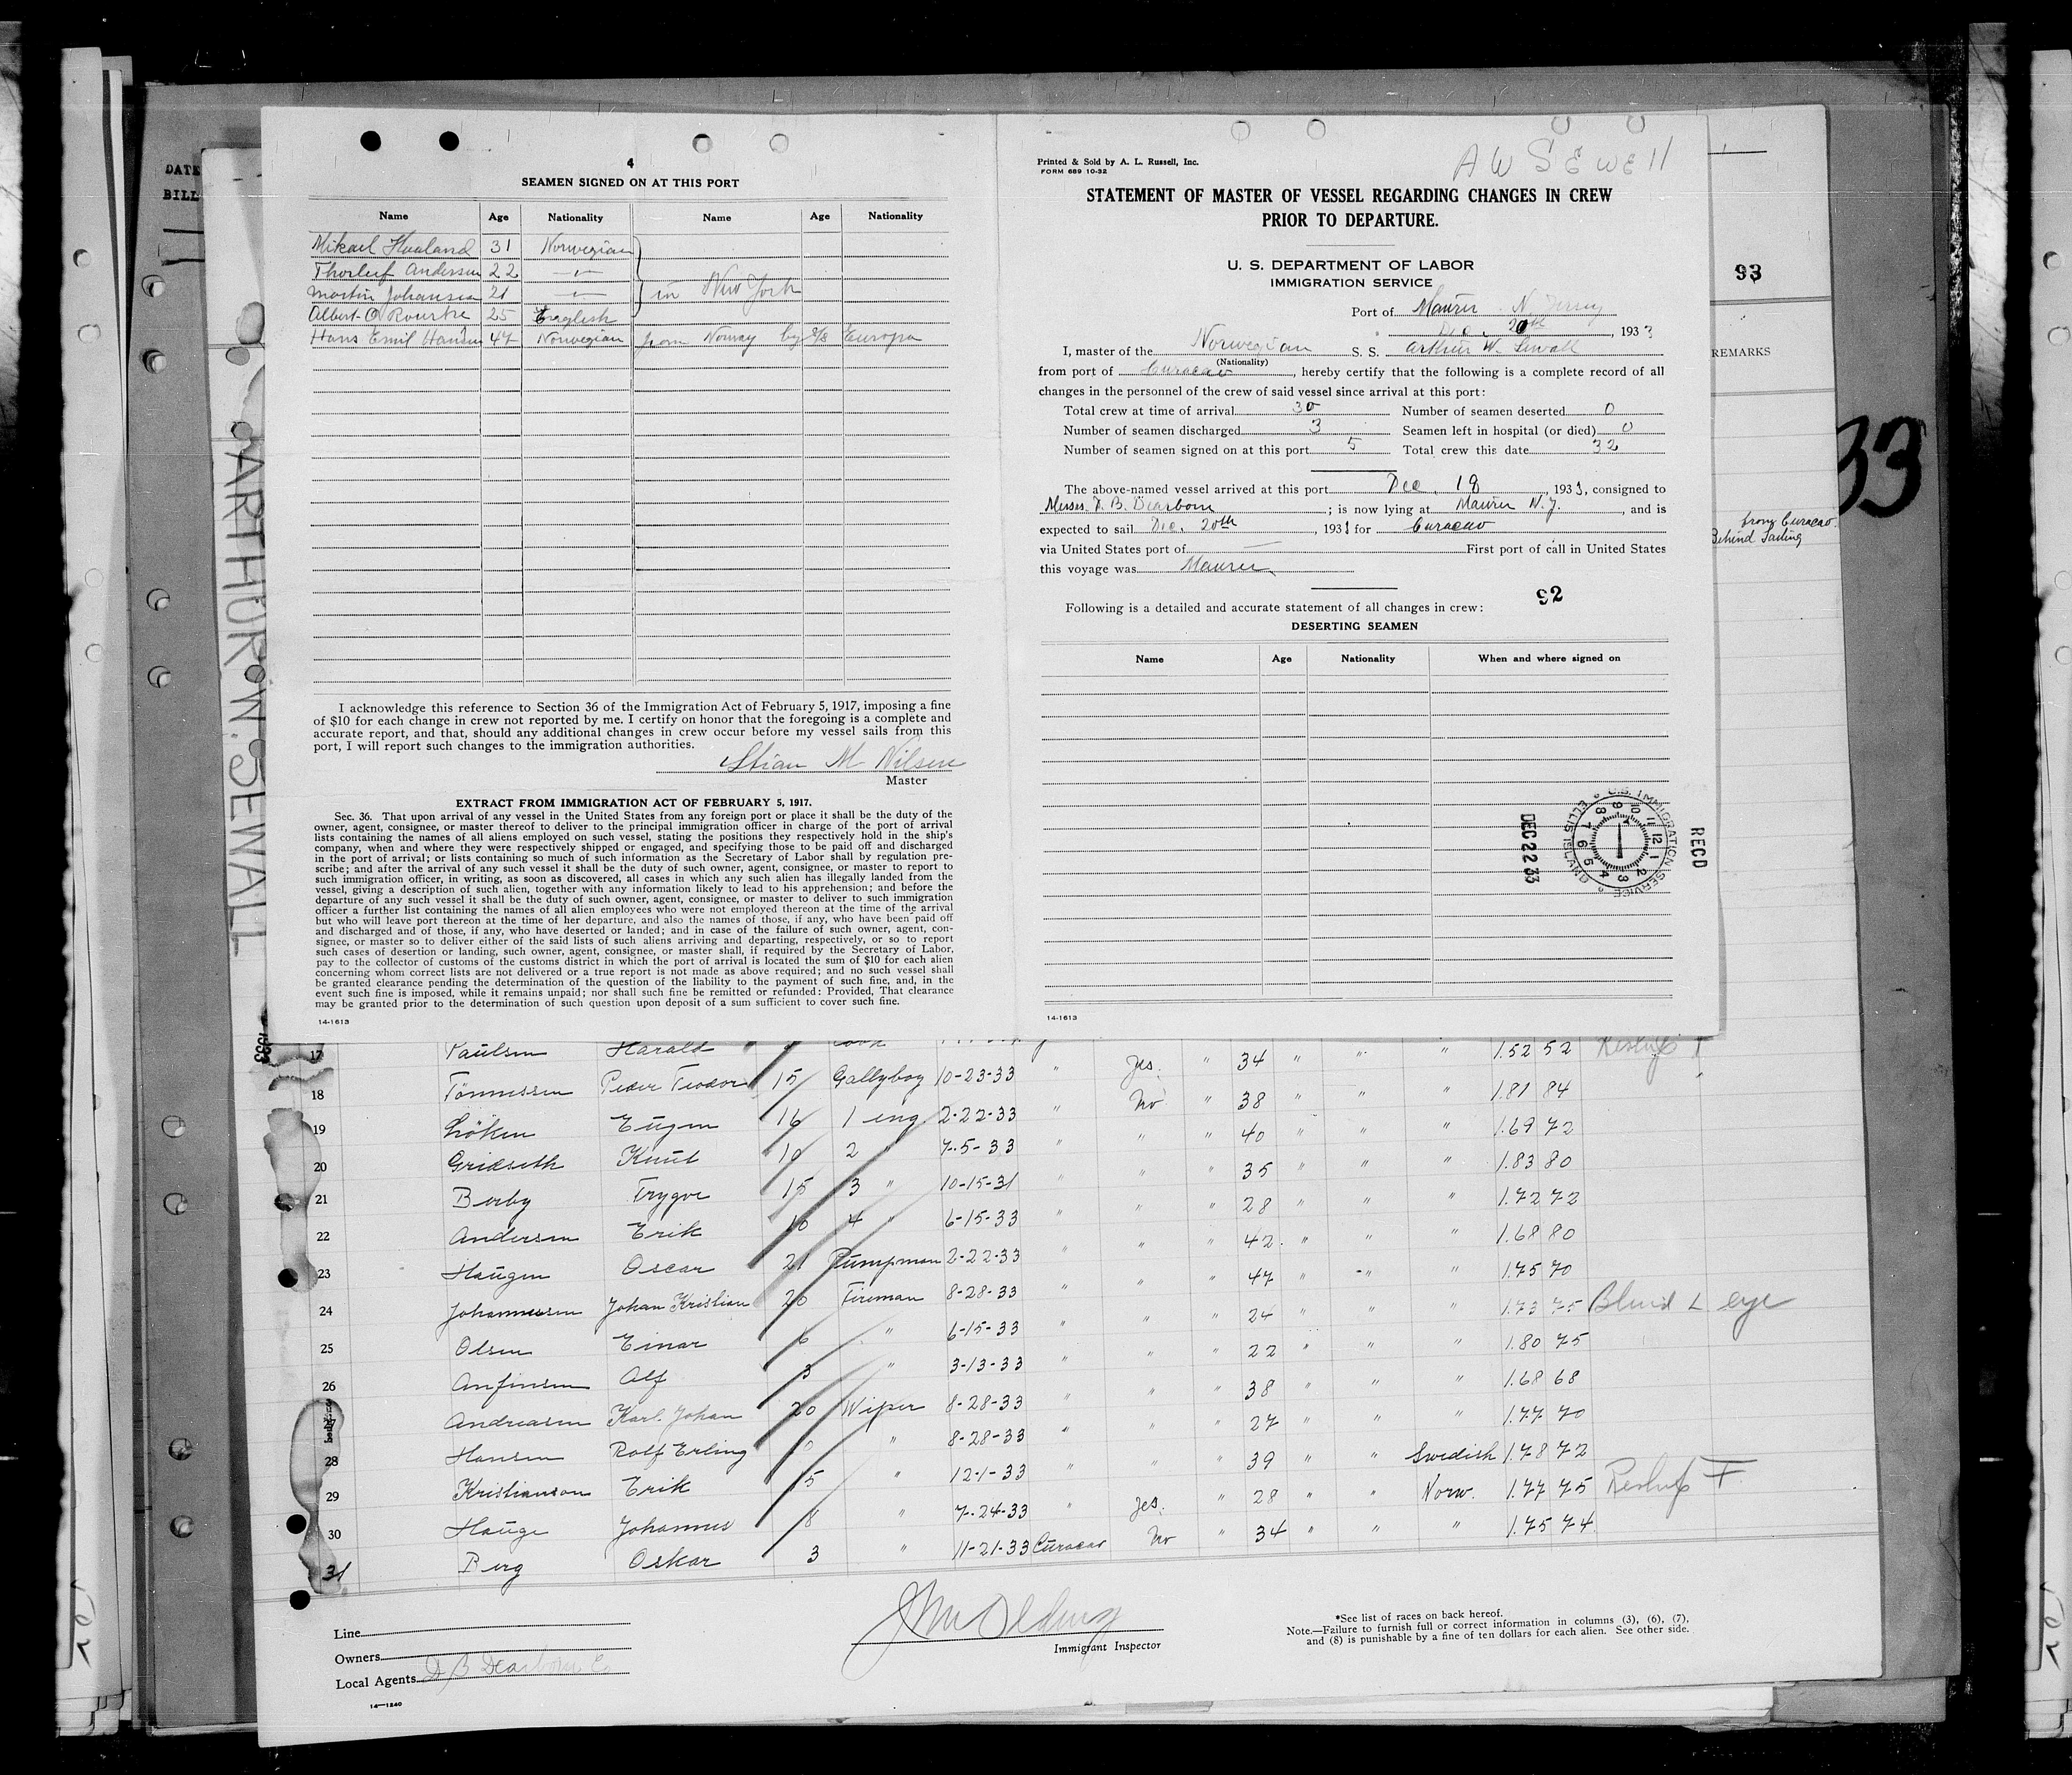 DATE
BILL
4
SEAMEN SIGNED ON AT THIS PORT
Name Age Nationality Name Age Nationality
Mikael Haaland 31 Norwegian
Thorleif Andersen 22 —"—
Martin Johansen 21 —"— in New York
Albert O'Rourke 25 English
Hans Emil Hansen 47 Norwegian from Norway by S/S Europa
I acknowledge this reference to Section 36 of the Immigration Act of February 5, 1917, imposing a fine
of $10 for each change in crew not reported by me. I certify on honor that the foregoing is a complete and
accurate report, and that, should any additional changes in crew occur before my vessel sails from this
port, I will report such changes to the immigration authorities.
Stian M Nilsen
Master
EXTRACT FROM IMMIGRATION ACT OF FEBRUARY 5, 1917.
Sec. 36. That upon arrival of any vessel in the United States from any foreign port or place it shall be the duty of the
owner, agent, consignee, or master thereof to deliver to the principal immigration officer in charge of the port of arrival
lists containing the names of all aliens employed on such vessel, stating the positions they respectively hold in the ship's
company, when and where they were respectively shipped or engaged, and specifying those to be paid off and discharged
in the port of arrival; or lists containing so much of such information as the Secretary of Labor shall by regulation pre-
scribe; and after the arrival of any such vessel it shall be the duty of such owner, agent, consignee, or master to report to
such immigration officer, in writing, as soon as discovered, all cases in which any such alien has illegally landed from the
vessel, giving a description of such alien, together with any information likely to lead to his apprehension; and before the
departure of any such vessel it shall be the duty of such owner, agent, consignee, or master to deliver to such immigration
officer a further list containing the names of all alien employees who were not employed thereon at the time of the arrival
but who will leave port thereon at the time of her departure, and also the names of those, if any, who have been paid off
and discharged and of those, if any, who have deserted or landed; and in case of the failure of such owner, agent, con-
signee, or master so to deliver either of the said lists of such aliens arriving and departing, respectively, or so to report
such cases of desertion or landing, such owner, agent, consignee, or master shall, if required by the Secretary of Labor,
pay to the collector of customs of the customs district in which the port of arrival is located the sum of $10 for each alien
concerning whom correct lists are not delivered or a true report is not made as above required; and no such vessel shall
be granted clearance pending the determination of the question of the liability to the payment of such fine, and, in the
event such fine is imposed, while it remains unpaid; nor shall such fine be remitted or refunded: Provided, That clearance
may be granted prior to the determination of such question upon deposit of a sum sufficient to cover such fine.
14-1613
Printed & Sold by A. L. Russell, Inc.
FORM 689 10-32
A W SEWEll
STATEMENT OF MASTER OF VESSEL REGARDING CHANGES IN CREW
PRIOR TO DEPARTURE.
U. S. DEPARTMENT OF LABOR
IMMIGRATION SERVICE
Port of Maurer N. Jersey
Dec. 20th, 1933
I, master of the Norwegian S. S. Arthur W. Sewall
(Nationality)
from port of Curacao, hereby certify that the following is a complete record of all
changes in the personnel of the crew of said vessel since arrival at this port:
Total crew at time of arrival 30 Number of seamen deserted 0
Number of seamen discharged 3 Seamen left in hospital (or died) 0
Number of seamen signed on at this port 5 Total crew this date 32
The above-named vessel arrived at this port Dec. 18, 1933, consigned to
Messrs. D. B. Dearborn; is now lying at Maurer N. J., and is
expected to sail Dec. 20th, 1933 for Curacao
via United States port of — First port of call in United States
this voyage was Maurer
92
Following is a detailed and accurate statement of all changes in crew:
DESERTING SEAMEN
Name Age Nationality When and where signed on
REC'D
U.S. IMMIGRATION SERVICE ELLIS ISLAND
12 1 2 3 4 5 6 7 8 9 10 11
DEC 22 33
14-1613
93
REMARKS
33
from Curacao.
Behind Sailing
ARTHUR W. SEWALL
17 Paulsen Harald cook Yes. " 34 " " " 1.52 52
18 Tönnessen Peder Teodor 15 Gallyboy 10-23-33 " No " 38 " " " 1.81 84
19 Löken Eugen 16 1 eng 2-22-33 " " " 40 " " " 1.69 72
20 Gridseth Knut 10 2 " 7-5-33 " " " 35 " " " 1.83 80
21 Berby Trygve 15 3 " 10-15-31 " " " 28 " " " 1.72 72
22 Andersen Erik 10 4 " 6-15-33 " " " 42 " " " 1.68 80
23 Haugen Oscar 21 Pumpman 2-22-33 " " " 47 " " " 1.75 70
24 Johannessen Johan Kristian 20 Fireman 8-28-33 " " " 24 " " " 1.73 75 Blind L eye
25 Olsen Einar 6 " 6-15-33 " " " 22 " " " 1.80 75
26 Anfinsen Alf 3 " 3-13-33 " " " 38 " " " 1.68 68
Andreasen Karl Johan 20 Wiper 8-28-33 " " " 27 " " " 1.77 70
28 Hansen Rolf Erling " 8-28-33 " " " 39 " " Swedish 1.78 72
29 Kristianson Erik 5 " 12-1-33 " Yes. " 28 " " Norw. 1.77 75
30 Hauge Johannes 8 " 7-24-33 " No " 34 " " " 1.75 74
31 Berg Oskar 3 " 11-21-33 Curacao
Line
Owners
Local Agents D B Dearborn
14—1240
Immigrant Inspector
*See list of races on back hereof.
Note.—Failure to furnish full or correct information in columns (3), (6), (7),
and (8) is punishable by a fine of ten dollars for each alien. See other side.